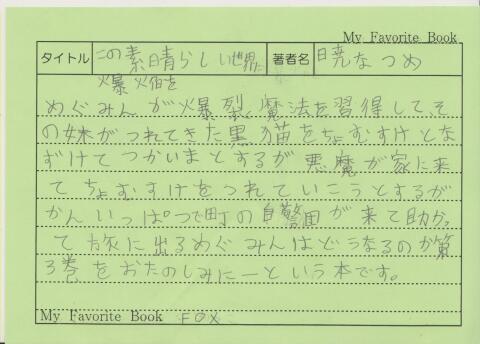 My Favorite Book
タイトル この素晴らしい世界に 著者名 暁なつめ
爆焔を
めぐみんが爆裂魔法を習得して、そ
の妹がつれてきた黒猫をちょむすけとな
ずけてつかいまとするが悪魔が家に来
てちょむすけをつれていこうとするが
かんいっぱつで町の自警団が来て助かっ
て旅に出るめぐみんはどうなるのか第
3巻をおたのしみにーという本です。
My Favorite Book FOX